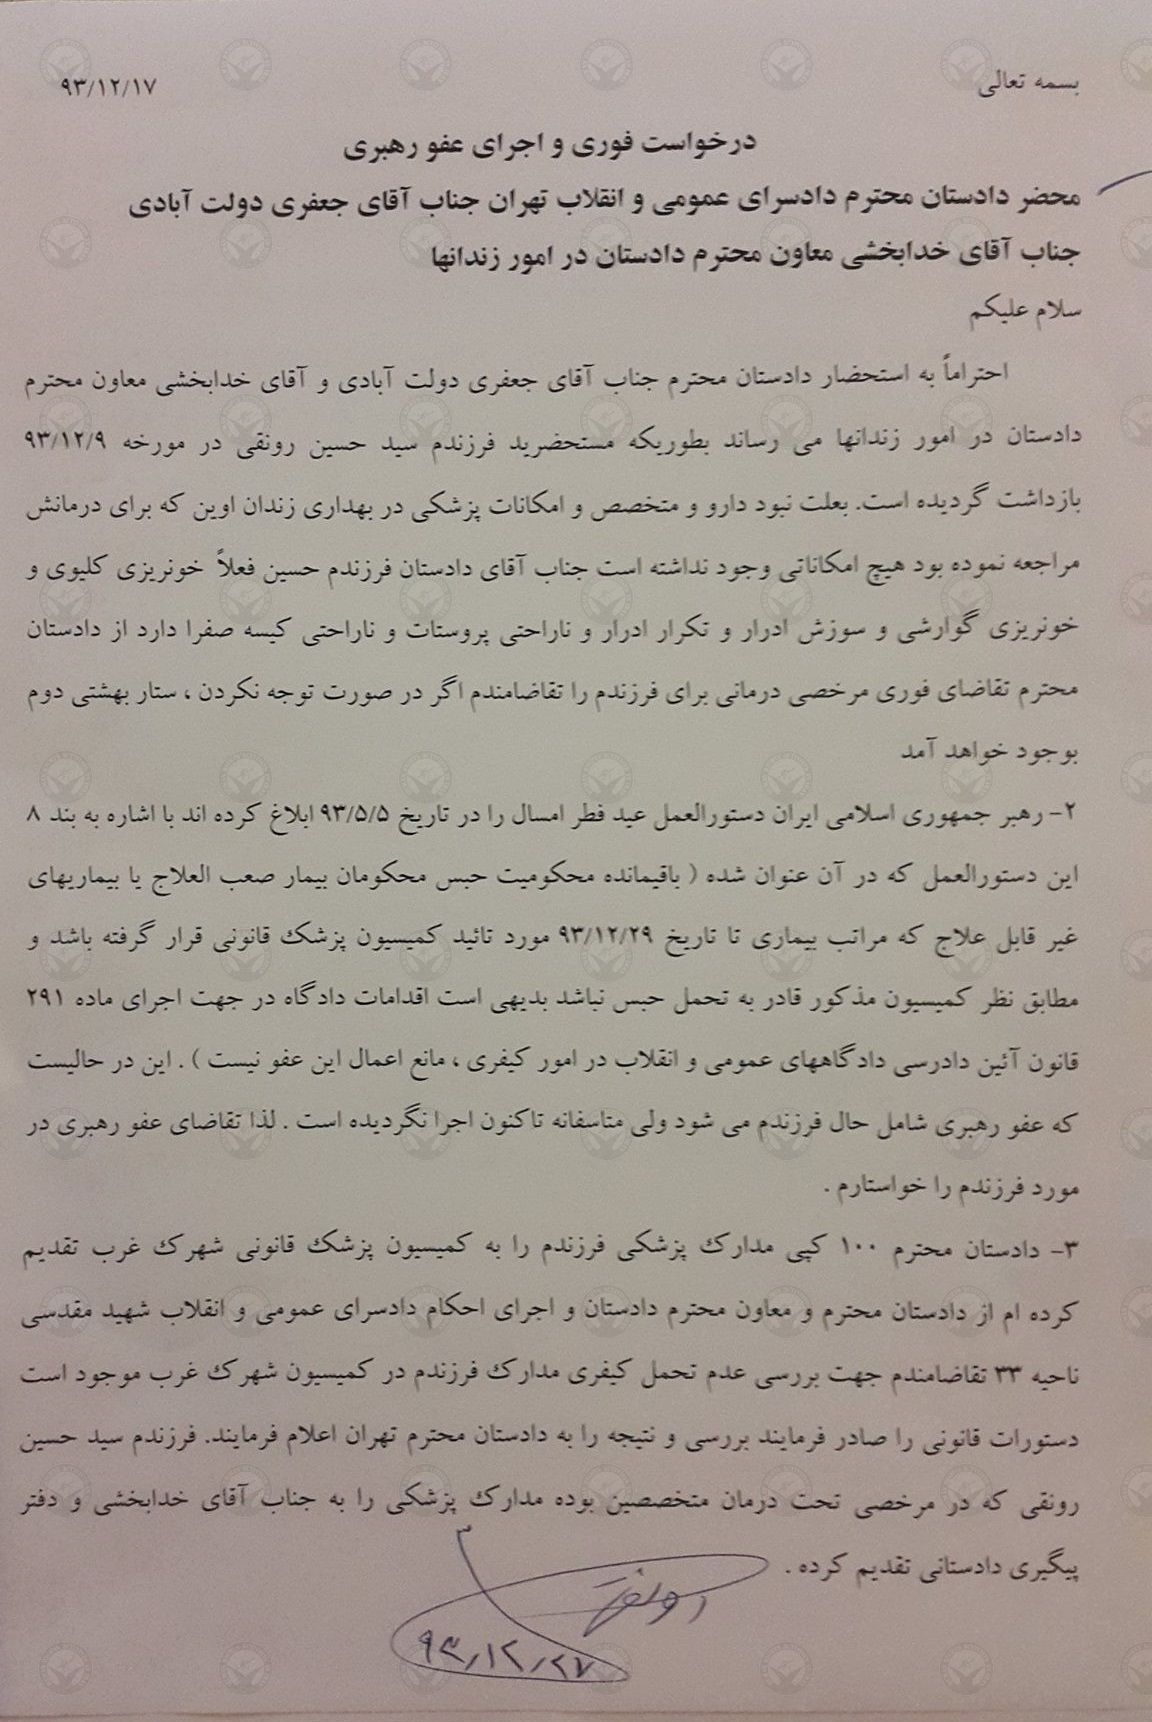 بسمه تعالی
۹۳/۱۲/۱۷
درخواست فوری و اجرای عفو رهبری
محضر دادستان محترم دادسرای عمومی و انقلاب تهران جناب آقای جعفری دولت آبادی
جناب آقای خدابخشی معاون محترم دادستان در امور زندانها
سلام علیکم
احتراماً به استحضار دادستان محترم جناب آقای جعفری دولت آبادی و آقای خدابخشی معاون محترم
دادستان در امور زندانها می رساند بطوریکه مستحضرید فرزندم سید حسین رونقی در مورخه ۹۳/۱۲/۹
بازداشت گردیده است. بعلت نبود دارو و متخصص و امکانات پزشکی در بهداری زندان اوین که برای درمانش
مراجعه نموده بود هیچ امکاناتی وجود نداشته است جناب آقای دادستان فرزندم حسین فعلاً خونریزی کلیوی و
خونریزی گوارشی و سوزش ادرار و تکرار ادرار و ناراحتی پروستات و ناراحتی کیسه صفرا دارد از دادستان
محترم تقاضای فوری مرخصی درمانی برای فرزندم را تقاضامندم اگر در صورت توجه نکردن ، ستار بهشتی دوم
بوجود خواهد آمد
۲- رهبر جمهوری اسلامی ایران دستورالعمل عید فطر امسال را در تاریخ ۹۳/۵/۵ ابلاغ کرده اند با اشاره به بند ۸
این دستورالعمل که در آن عنوان شده ( باقیمانده محکومیت حبس محکومان بیمار صعب العلاج یا بیماریهای
غیر قابل علاج که مراتب بیماری تا تاریخ ۹۳/۱۲/۲۹ مورد تائید کمیسیون پزشک قانونی قرار گرفته باشد و
مطابق نظر کمیسیون مذکور قادر به تحمل حبس نباشد بدیهی است اقدامات دادگاه در جهت اجرای ماده ۲۹۱
قانون آئین دادرسی دادگاههای عمومی و انقلاب در امور کیفری ، مانع اعمال این عفو نیست ) . این در حالیست
که عفو رهبری شامل حال فرزندم می شود ولی متاسفانه تاکنون اجرا نگردیده است . لذا تقاضای عفو رهبری در
مورد فرزندم را خواستارم .
۳- دادستان محترم ۱۰۰ کپی مدارک پزشکی فرزندم را به کمیسیون پزشک قانونی شهرک غرب تقدیم
کرده ام از دادستان محترم و معاون محترم دادستان و اجرای احکام دادسرای عمومی و انقلاب شهید مقدسی
ناحیه ۳۳ تقاضامندم جهت بررسی عدم تحمل کیفری مدارک فرزندم در کمیسیون شهرک غرب موجود است
دستورات قانونی را صادر فرمایند بررسی و نتیجه را به دادستان محترم تهران اعلام فرمایند. فرزندم سید حسین
رونقی که در مرخصی تحت درمان متخصصین بوده مدارک پزشکی را به جناب آقای خدابخشی و دفتر
پیگیری دادستانی تقدیم کرده .
رونقی
۹۳/۱۲/۲۷